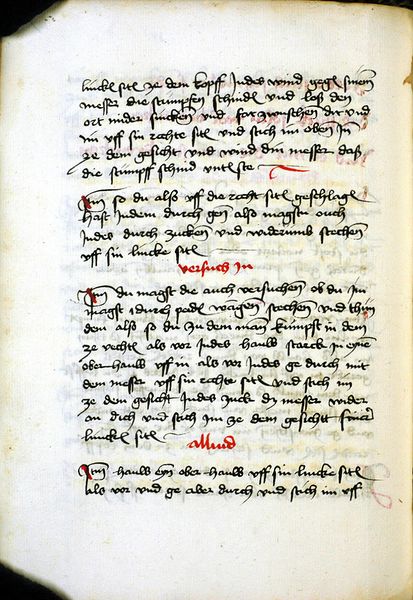 linckē sitē ze dem kopff Indes wind gegē sinem
messer die stumpfen schnidē und loß den
ort nider sincken und far zwischen dir und
im vff sin rechte sitē und stich im oben In
ze dem gesicht und wind din messer daß
die stumpff schnid vntē ste
Itm so du alß vff die recht sitē geschlagē
hast Indem durch gen alß magstu ouch
Indes durch zucken und widerumb stechen
vff sin lincke sitē
versuch In
Itm du magst die auch versuchen ob du im
magst durch paid wagen stechen und thun
dem alß so du zu dem man kumpst in dem
ze vechtē als vor Indes hauw starck in eyne
ober hauw vff in als vor Indes ge durch mit
dem messer vff sin rechte sitē und stich im
ze dem gesicht Indes zuck dz messer wider
an dich und stich im ze dem gesicht siner
linckē sitē
Itm hauw eyn ober hauw vff sin lincke sitē
als vor und ge aber durch und stich im vff